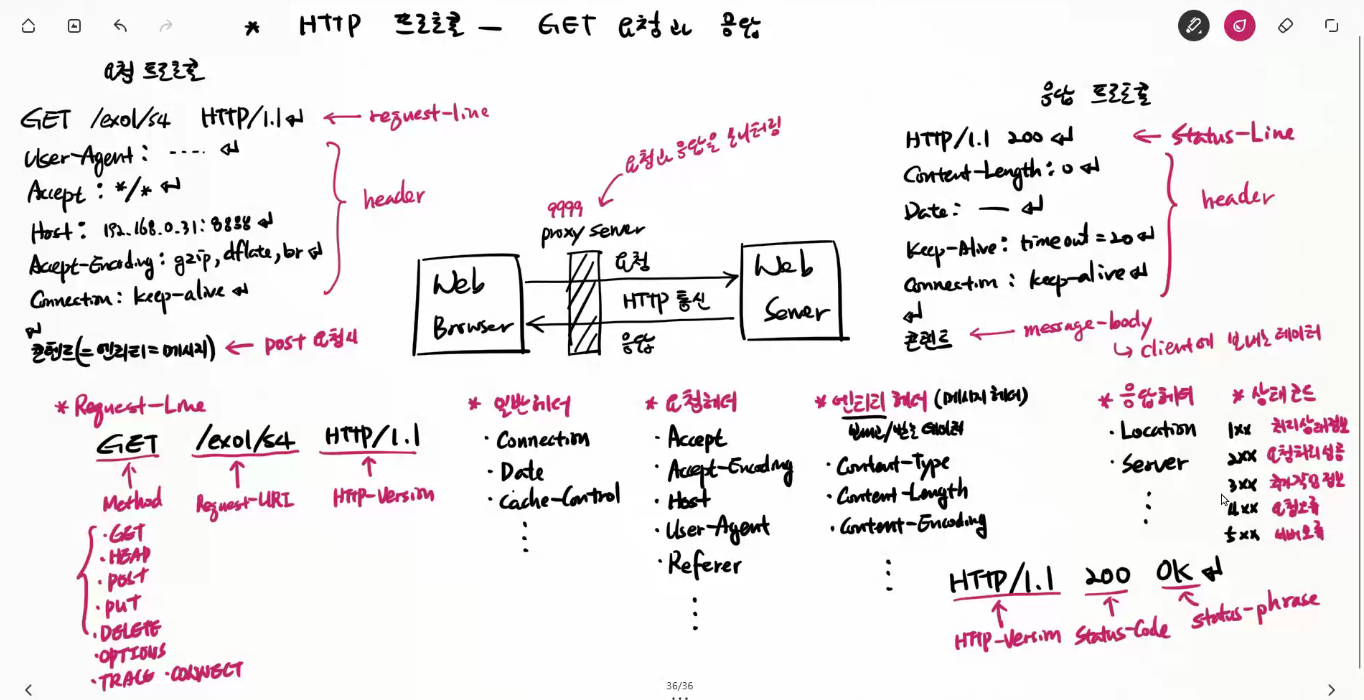 * HTTP 프로토콜 — GET 요청과 응답
요청 프로토콜
GET /ex01/s4 HTTP/1.1↵ ← request-line
User-Agent : ---- ↵
Accept : */* ↵
Host : 192.168.0.31:8888 ↵
Accept-Encoding : gzip, dflate, br ↵
Connection : keep-alive ↵
header
↵
콘텐트(=엔티티=메시지) ← post 요청시
요청과 응답을 모니터링
9999
proxy server
Web
Browser
요청
HTTP 통신
응답
Web
Server
응답 프로토콜
HTTP/1.1 200 ↵ ← Status-Line
Content-Length : 0 ↵
Date : — ↵
Keep-Alive : timeout=20 ↵
Connection : keep-alive ↵
header
↵
콘텐트 ← message-body
↳ client에 보내는 데이터
* Request-Line
GET /ex01/s4 HTTP/1.1
Method Request-URI HTTP-Version
· GET
· HEAP
· POST
· PUT
· DELETE
· OPTIONS
· TRACE · CONNECT
* 일반헤더
· Connection
· Date
· Cache-Control
* 요청헤더
· Accept
· Accept-Encoding
· Host
· User-Agent
· Referer
* 엔티티 헤더 (메시지 헤더)
보내고/받는 데이터
· Content-Type
· Content-Length
· Content-Encoding
* 응답헤더
· Location
· Server
* 상태코드
1xx 처리상태정보
2xx 요청처리성공
3xx 추가작업정보
4xx 요청오류
5xx 서버오류
HTTP/1.1 200 OK ↵
HTTP-Version Status-Code status-phrase
36/36